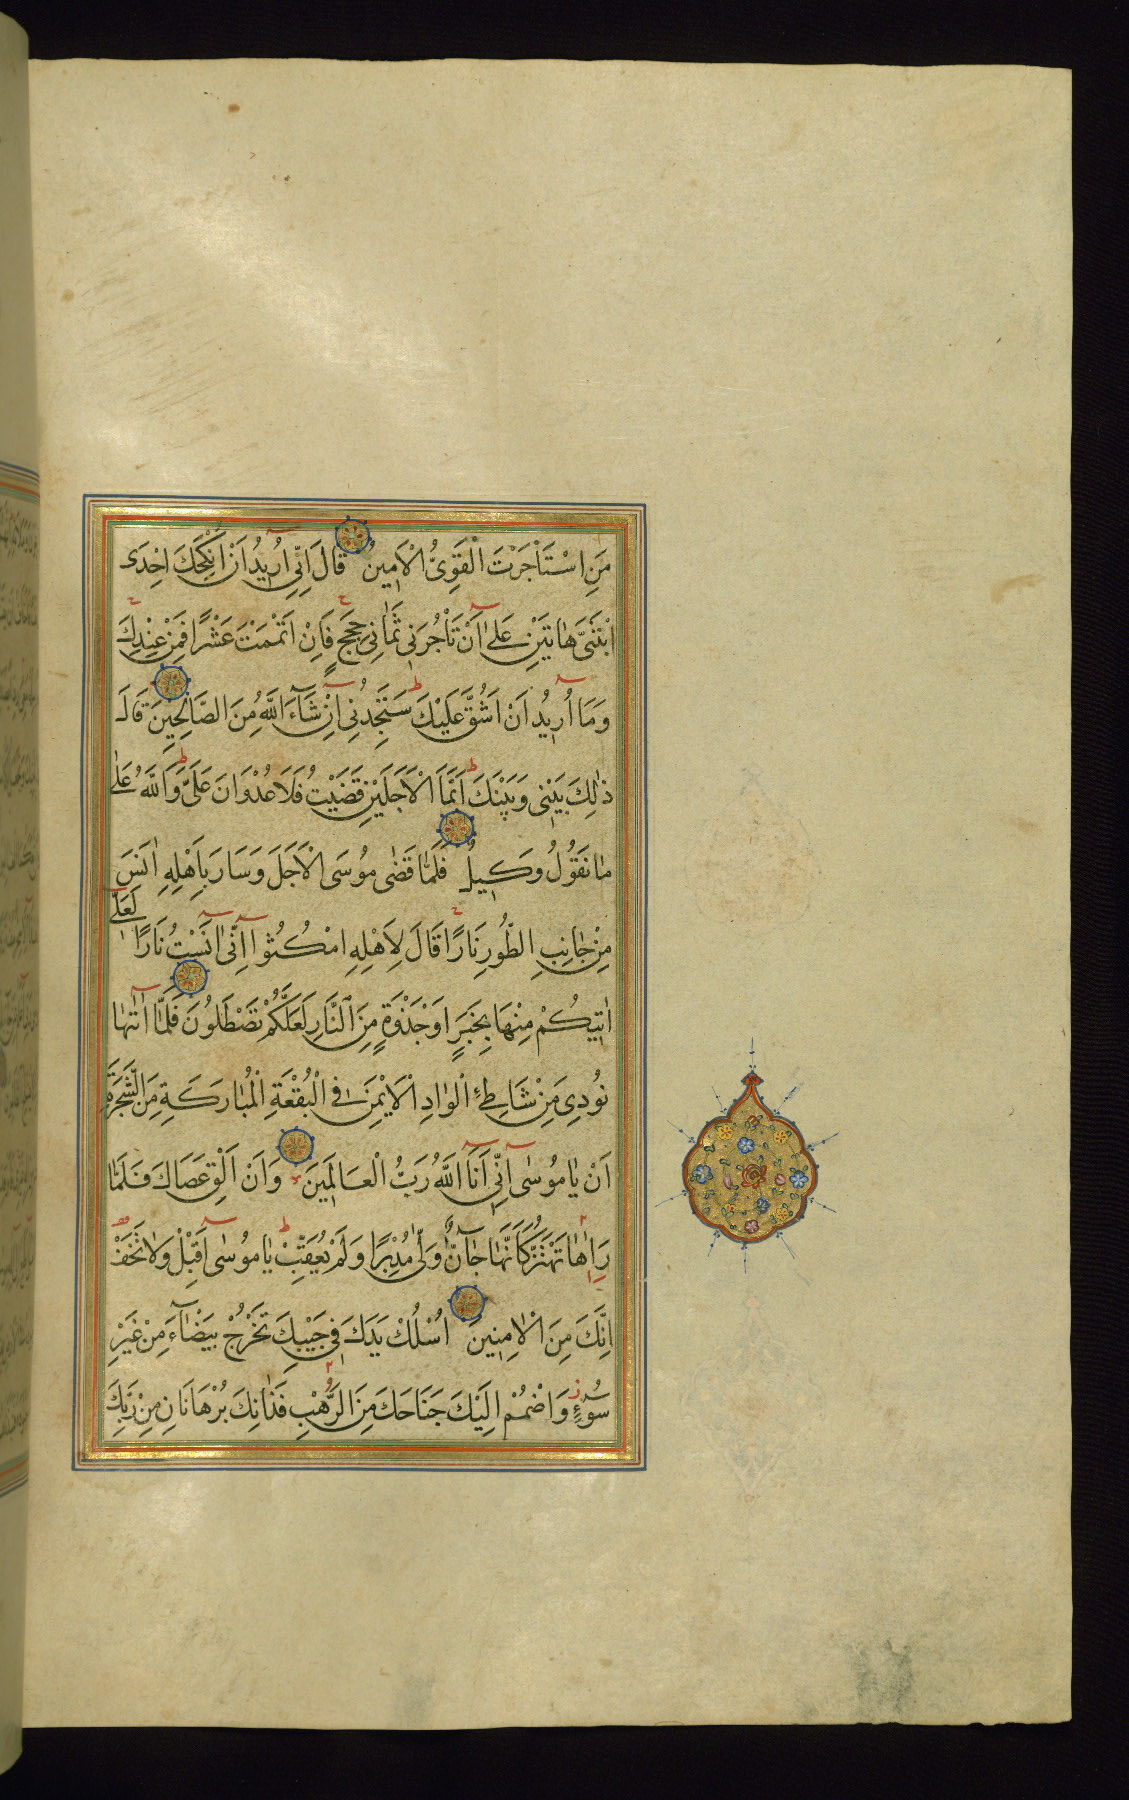 مَنِ اسْتَأْجَرْتَ الْقَوِىُّ الْاَمِينُ قَالَ اِنِّى اُرِيدُ اَنْ اُنْكِحَكَ اِحْدَى
ابْنَتَىَّ هَاتَيْنِ عَلٰى اَنْ تَأْجُرَنِى ثَمَانِىَ حِجَجٍ فَاِنْ اَتْمَمْتَ عَشْرًا فَمِنْ عِنْدِكَ
وَمَا اُرِيدُ اَنْ اَشُقَّ عَلَيْكَ سَتَجِدُنِى اِنْ شَآءَ اللّٰهُ مِنَ الصَّالِحِينَ قَالَ
ذٰلِكَ بَيْنِى وَبَيْنَكَ اَيَّمَا الْاَجَلَيْنِ قَضَيْتُ فَلَا عُدْوَانَ عَلَىَّ وَاللّٰهُ عَلٰى
مَا نَقُولُ وَكِيلٌ فَلَمَّا قَضٰى مُوسَى الْاَجَلَ وَسَارَ بِاَهْلِهِ اٰنَسَ
مِنْ جَانِبِ الطُّورِ نَارًا قَالَ لِاَهْلِهِ امْكُثُوا اِنِّى اٰنَسْتُ نَارًا لَعَلِّى
اٰتِيكُمْ مِنْهَا بِخَبَرٍ اَوْ جَذْوَةٍ مِنَ النَّارِ لَعَلَّكُمْ تَصْطَلُونَ فَلَمَّا اَتٰيهَا
نُودِىَ مِنْ شَاطِئِ الْوَادِ الْاَيْمَنِ فِى الْبُقْعَةِ الْمُبَارَكَةِ مِنَ الشَّجَرَةِ
اَنْ يَا مُوسٰى اِنِّى اَنَا اللّٰهُ رَبُّ الْعَالَمِينَ وَاَنْ اَلْقِ عَصَاكَ فَلَمَّا
رَاٰهَا تَهْتَزُّ كَاَنَّهَا جَآنٌّ وَلّٰى مُدْبِرًا وَلَمْ يُعَقِّبْ يَا مُوسٰى اَقْبِلْ وَلَا تَخَفْ
اِنَّكَ مِنَ الْاٰمِنِينَ اُسْلُكْ يَدَكَ فِى جَيْبِكَ تَخْرُجْ بَيْضَآءَ مِنْ غَيْرِ
سُوءٍ وَاضْمُمْ اِلَيْكَ جَنَاحَكَ مِنَ الرَّهْبِ فَذَانِكَ بُرْهَانَانِ مِنْ رَبِّكَ